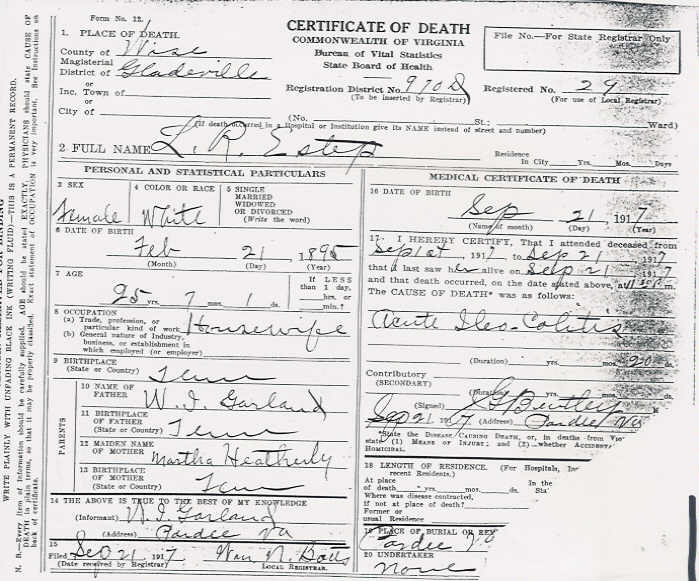 Form No. 12.
1. PLACE OF DEATH.
County of Wise
Magisterial
District of Gladeville
or
Inc. Town of
or
City of
CERTIFICATE OF DEATH
COMMONWEALTH OF VIRGINIA
Bureau of Vital Statistics
State Board of Health
File No.—For State Registrar Only
Registration District No. 970D
(To be inserted by Registrar)
Registered No. 29
(For use of Local Registrar)
(No. St.; Ward)
(If death occurred in a Hospital or Institution give its NAME instead of street and number)
2 FULL NAME L. R. Estep
Residence
In City Yrs. Mos. Days
PERSONAL AND STATISTICAL PARTICULARS
3 SEX
Female
4 COLOR OR RACE
White
5 SINGLE
MARRIED
WIDOWED
OR DIVORCED
(Write the word)
6 DATE OF BIRTH
Feb 21 1895
(Month) (Day) (Year)
7 AGE
25 yrs. 7 mos. 1 ds.
If LESS
than 1 day,
hrs. or
min.?
8 OCCUPATION
(a) Trade, profession, or
particular kind of work Housewife
(b) General nature of Industry,
business, or establishment in
which employed (or employer)
9 BIRTHPLACE
(State or Country) Tenn
PARENTS
10 NAME OF
FATHER W. I. Garland
11 BIRTHPLACE
OF FATHER
(State or Country) Tenn
12 MAIDEN NAME
OF MOTHER Martha Heatherly
13 BIRTHPLACE
OF MOTHER
(State or Country) Tenn
14 THE ABOVE IS TRUE TO THE BEST OF MY KNOWLEDGE
(Informant) W I Garland
(Address) Pardee Va
15
Filed Sep 21 1917 Wm. N. Botts
(Date received by Registrar) LOCAL REGISTRAR.
MEDICAL CERTIFICATE OF DEATH
16 DATE OF BIRTH
Sep 21, 1917
(Name of month) (Day) (Year)
17 I HEREBY CERTIFY, That I attended deceased from
Sep 1st, 1917, to Sep 21, 1917
that I last saw her alive on Sep 21, 1917
and that death occurred, on the date stated above, at m.
The CAUSE OF DEATH* was as follows:
Acute Ileo-Colitis
(Duration) yrs. mos. 20 ds.
Contributory
(SECONDARY)
(Duration) yrs. mos.
(Signed) Bentley M
Sep 21 1917 (Address) Pardee Va
*State the DISEASE CAUSING DEATH, or, in deaths from Vio
state (1) MEANS OF INJURY; and (2) whether ACCIDENT
HOMICIDAL.
18 LENGTH OF RESIDENCE. (For Hospitals, In
recent Residents.)
At place In the
of death yrs. mos. ds. Sta
Where was disease contracted,
if not at place of death?
Former or
usual Residence
19 PLACE OF BURIAL OR REM
Pardee Va
20 UNDERTAKER
None
WRITE PLAINLY WITH UNFADING BLACK INK (WRITING FLUID)—THIS IS A PERMANENT RECORD.
N. B.—Every item of Information should be carefully supplied. AGE should be stated EXACTLY. PHYSICIANS should state CAUSE OF
DEATH in plain terms, so that it may be properly classified. Exact statement of OCCUPATION is very important. See Instructions on
back of certificate.